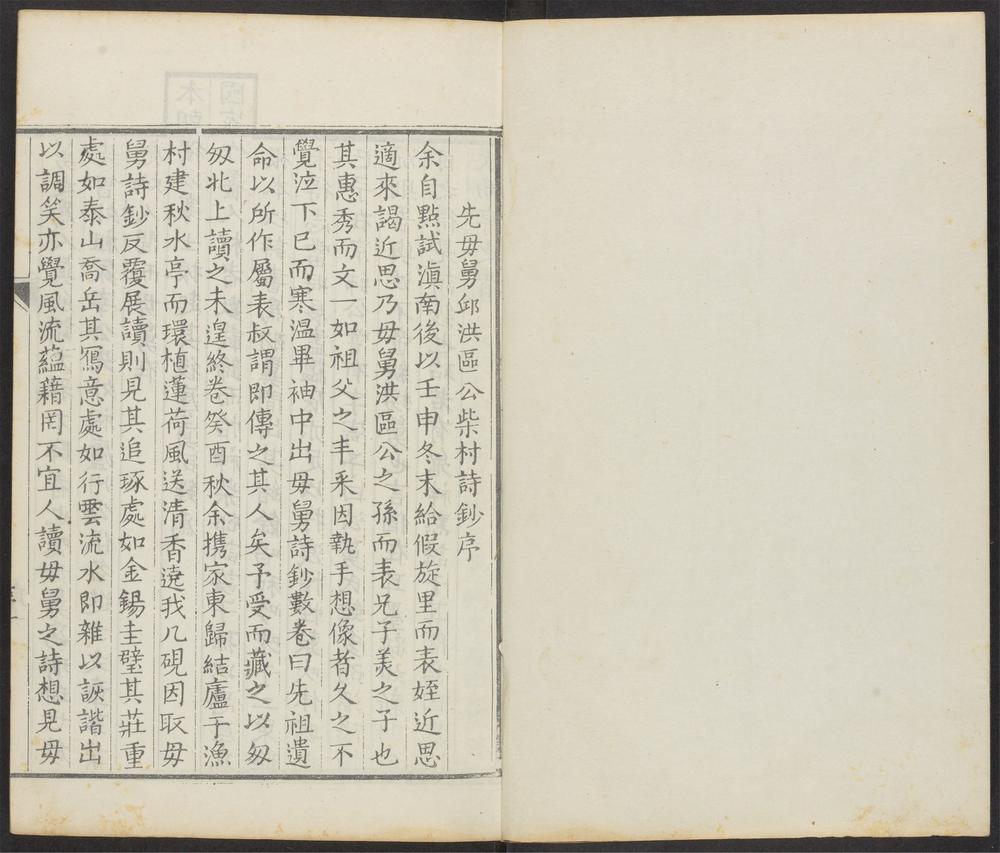 先毋舅邱洪區公柴村詩鈔序
余自點試滇南後以壬申冬末給假旋里而表姪近思
適來謁近思乃毋舅洪區公之孫而表兄子羙之子也
其惠秀而文一如祖父之丰采因執手想像者久之不
覺泣下已而寒温畢袖中出毋舅詩鈔數卷曰先祖遺
命以所作屬表叔謂即傳之其人矣予受而藏之以匆
匆北上讀之未遑終卷癸酉秋余携家東歸結廬于漁
村建秋水亭而環植蓮荷風送清香遶我几硯因取毋
舅詩鈔反覆展讀則見其追琢處如金錫圭璧其莊重
處如泰山喬岳其冩意處如行雲流水即雜以詼諧出
以調笑亦覺風流藴藉罔不宜人讀毋舅之詩想見毋